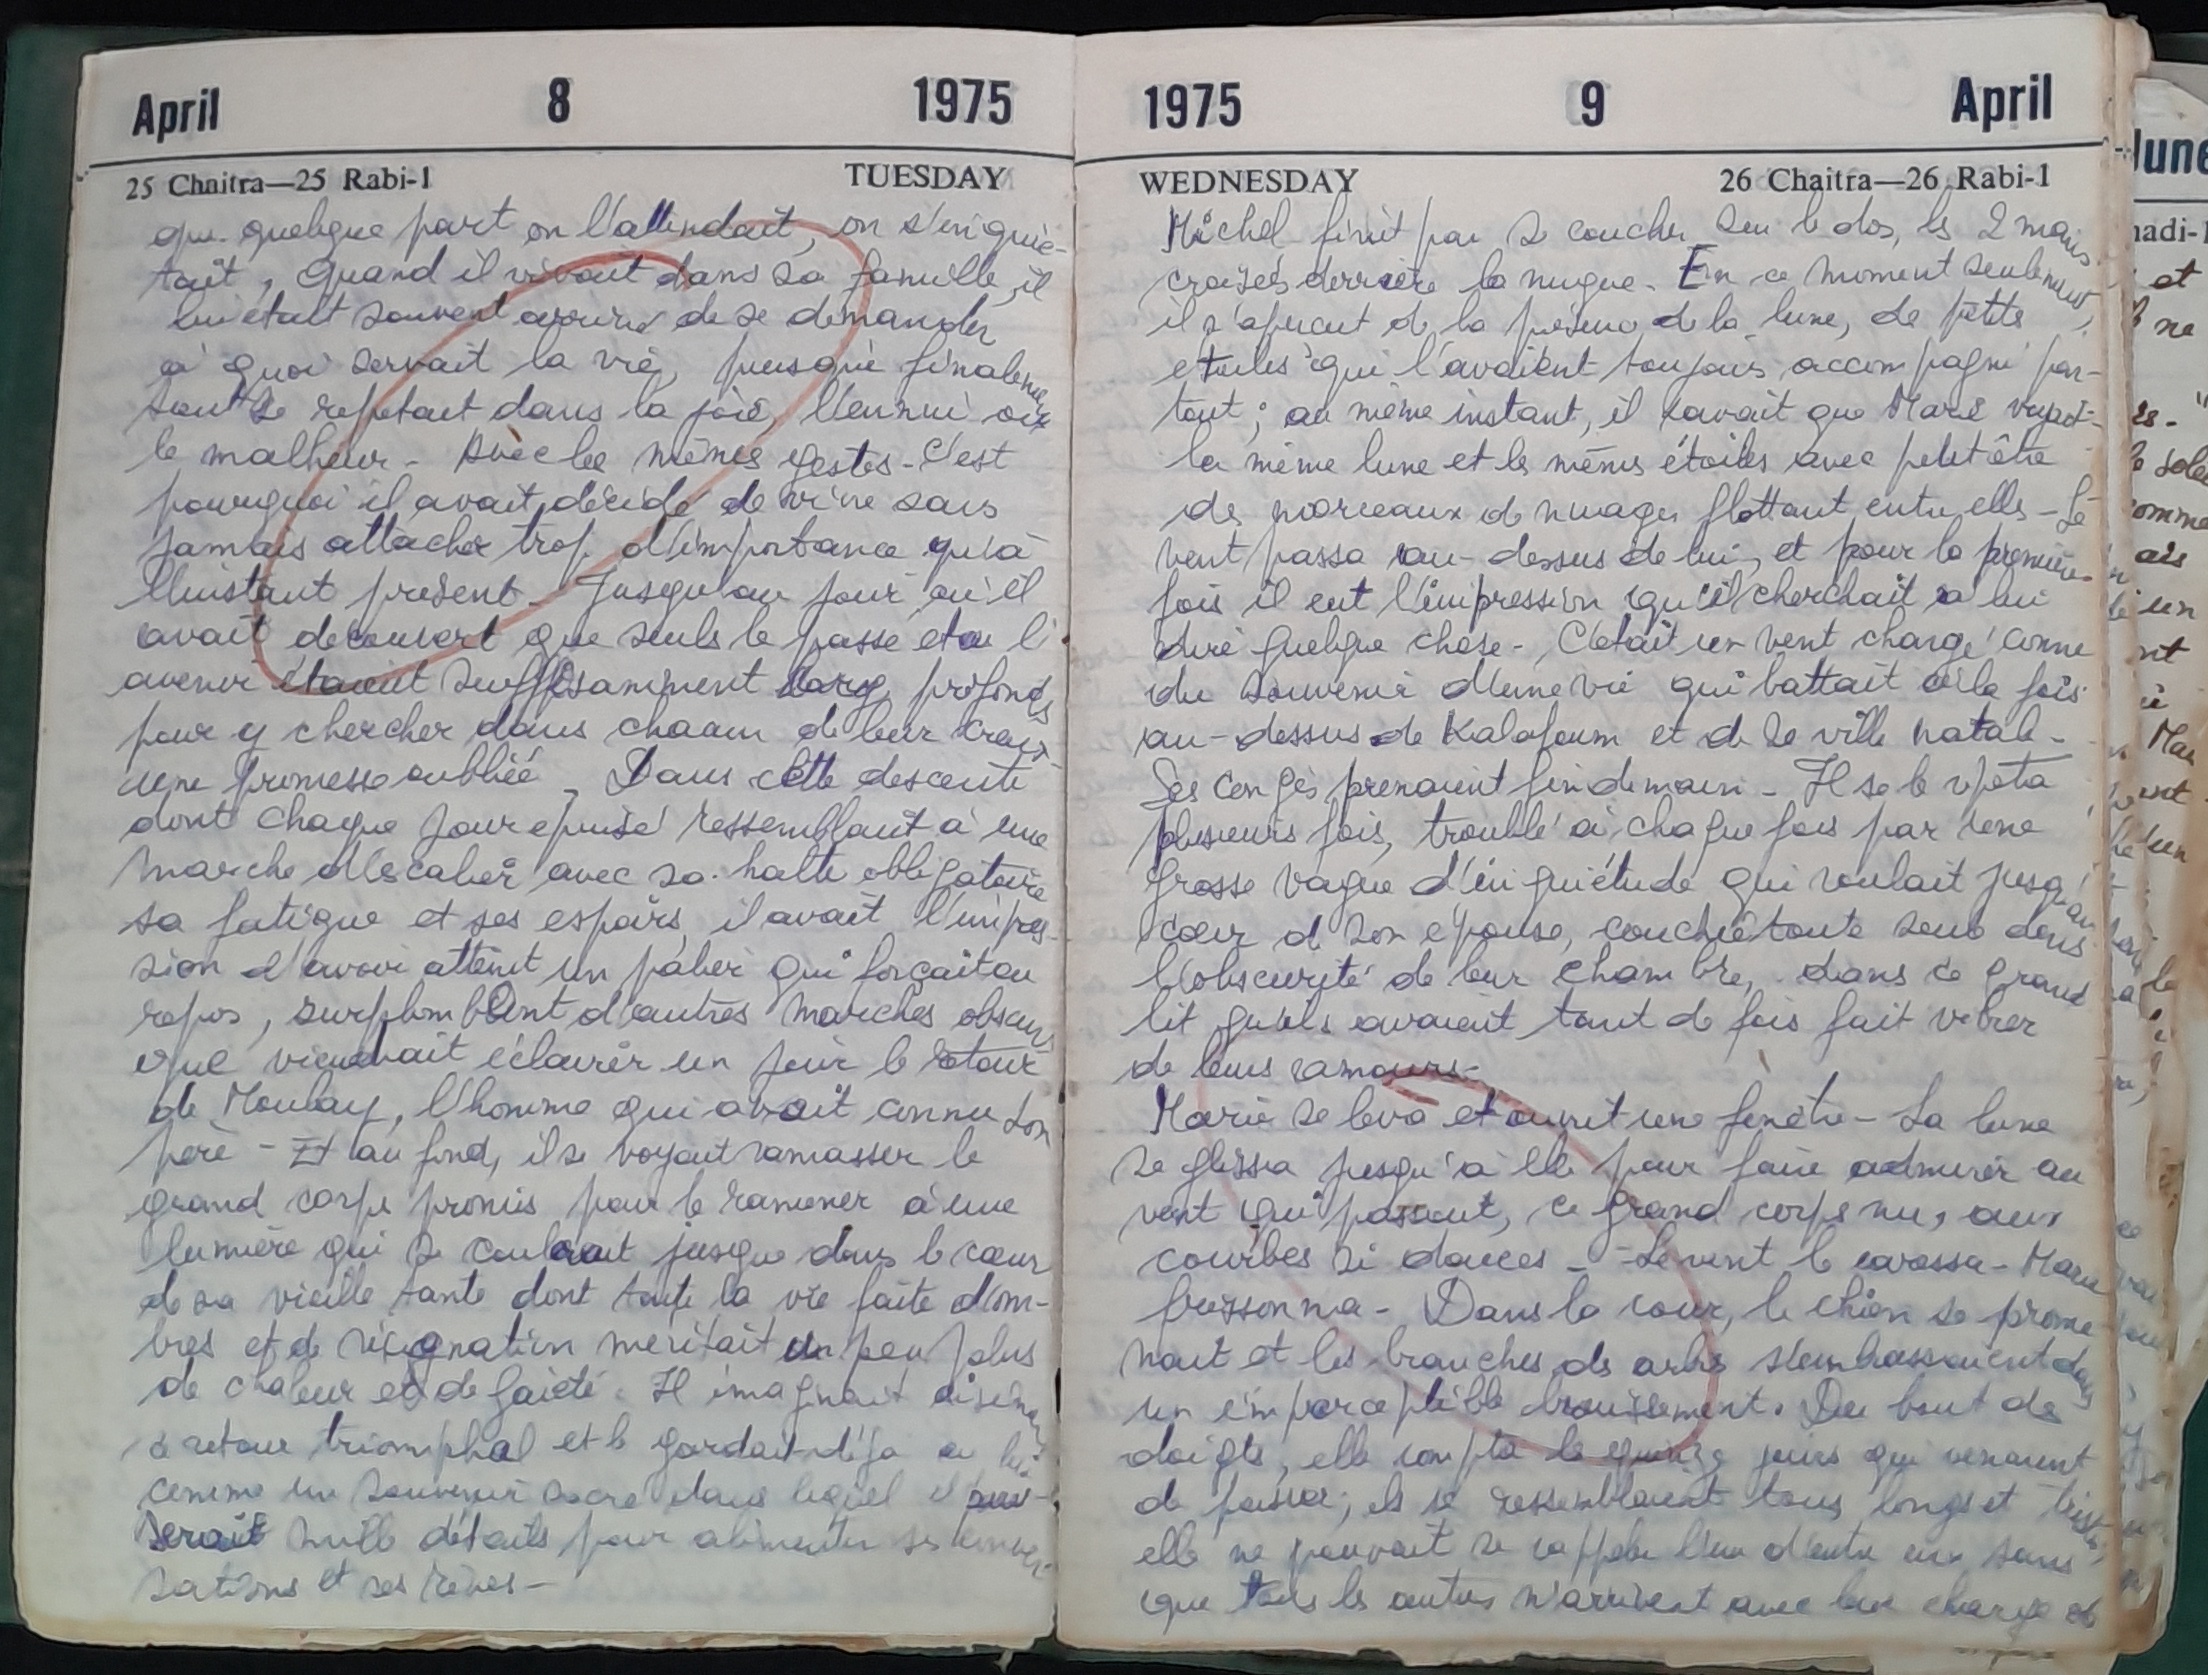 April 8 1975
25 Chaitra—25 Rabi-1 TUESDAY
que quelque part on l'attendait, on s'inquié-
tait, Quand il vivait dans sa famille, il
lui était souvent arrivé de se demander
à quoi servait la vie, puisque finalement
tout se repetait dans la joie, l'ennui ou
le malheur - Avec les mêmes gestes - C'est
pourquoi il avait décidé de vivre sans
jamais attacher trop d'importance qu'à
l'instant present - Jusqu'au jour où il
avait decouvert que seuls le passé et l'
avenir étaient suffisamment larges, profonds
pour y chercher dans chacun de leur
une promesse oubliée - Dans cette descente
dont chaque jour epuisé ressemblait à une
marche d'escalier avec sa halte obligatoire
sa fatigue et ses espoirs, il avait l'impres-
sion d'avoir atteint un palier qui forçait au
repos, surplombant d'autres marches obscures
que viendrait éclairer un jour le retour
de Moulay, l'homme qui avait connu son
père - Et au fond, il se voyait ramasser le
grand corps promis pour le ramener à une
lumière qui se coulerait jusque dans le cœur
de sa vieille tante dont toute la vie faite d'om-
bres et de résignation meritait un peu plus
de chaleur et de gaieté. Il imaginait aisément
ce retour triomphal et le gardait déjà en lui
comme un souvenir sacré dans lequel il pui-
serait mille détails pour alimenter ses conver-
sations et ses rêves -
1975 9 April
WEDNESDAY 26 Chaitra—26 Rabi-1
Michel finit par se coucher sur le dos, les 2 mains
croisées derrière la nuque - En ce moment seulement,
il s'aperçut de la présence de la lune, de petites
etoiles qui l'avaient toujours accompagné par-
tout ; au même instant, il savait que Marie voyait
la même lune et les mêmes étoiles avec peut être
des morceaux de nuages flottant entre elles - Le
vent passa au-dessus de lui, et pour la première
fois il eut l'impression qu'il cherchait à lui
dire quelque chose - C'était un vent chargé comme
du souvenir d'une vie qui battait à la fois
au-dessus de Kalafoum et de sa ville natale -
Ses congés prenaient fin demain - Il se le répéta
plusieurs fois, troublé à chaque fois par une
grosse vague d'inquiétude qui roulait jusqu'au
cœur de son épouse, couchée toute seule dans
l'obscurité de leur chambre, dans ce grand
lit qu'ils avaient tant de fois fait vibrer
de leurs amours -
Marie se leva et ouvrit une fenêtre - La lune
se glissa jusqu'à elle pour faire admirer au
vent qui passait, ce grand corps nu, aux
courbes si douces - Le vent le caressa - Marie
frissonna - Dans la cour, le chien se prome
nait et les branches des arbres s'embrassaient dans
un imperceptible bruissement. Du bout des
doigts, elle compta les quinze jours qui venaient
de passer, ils se ressemblaient tous longs et tristes,
elle ne pouvait se rappeler l'un d'entre eux sans
que tous les autres n'arrivent avec leur charge de
June